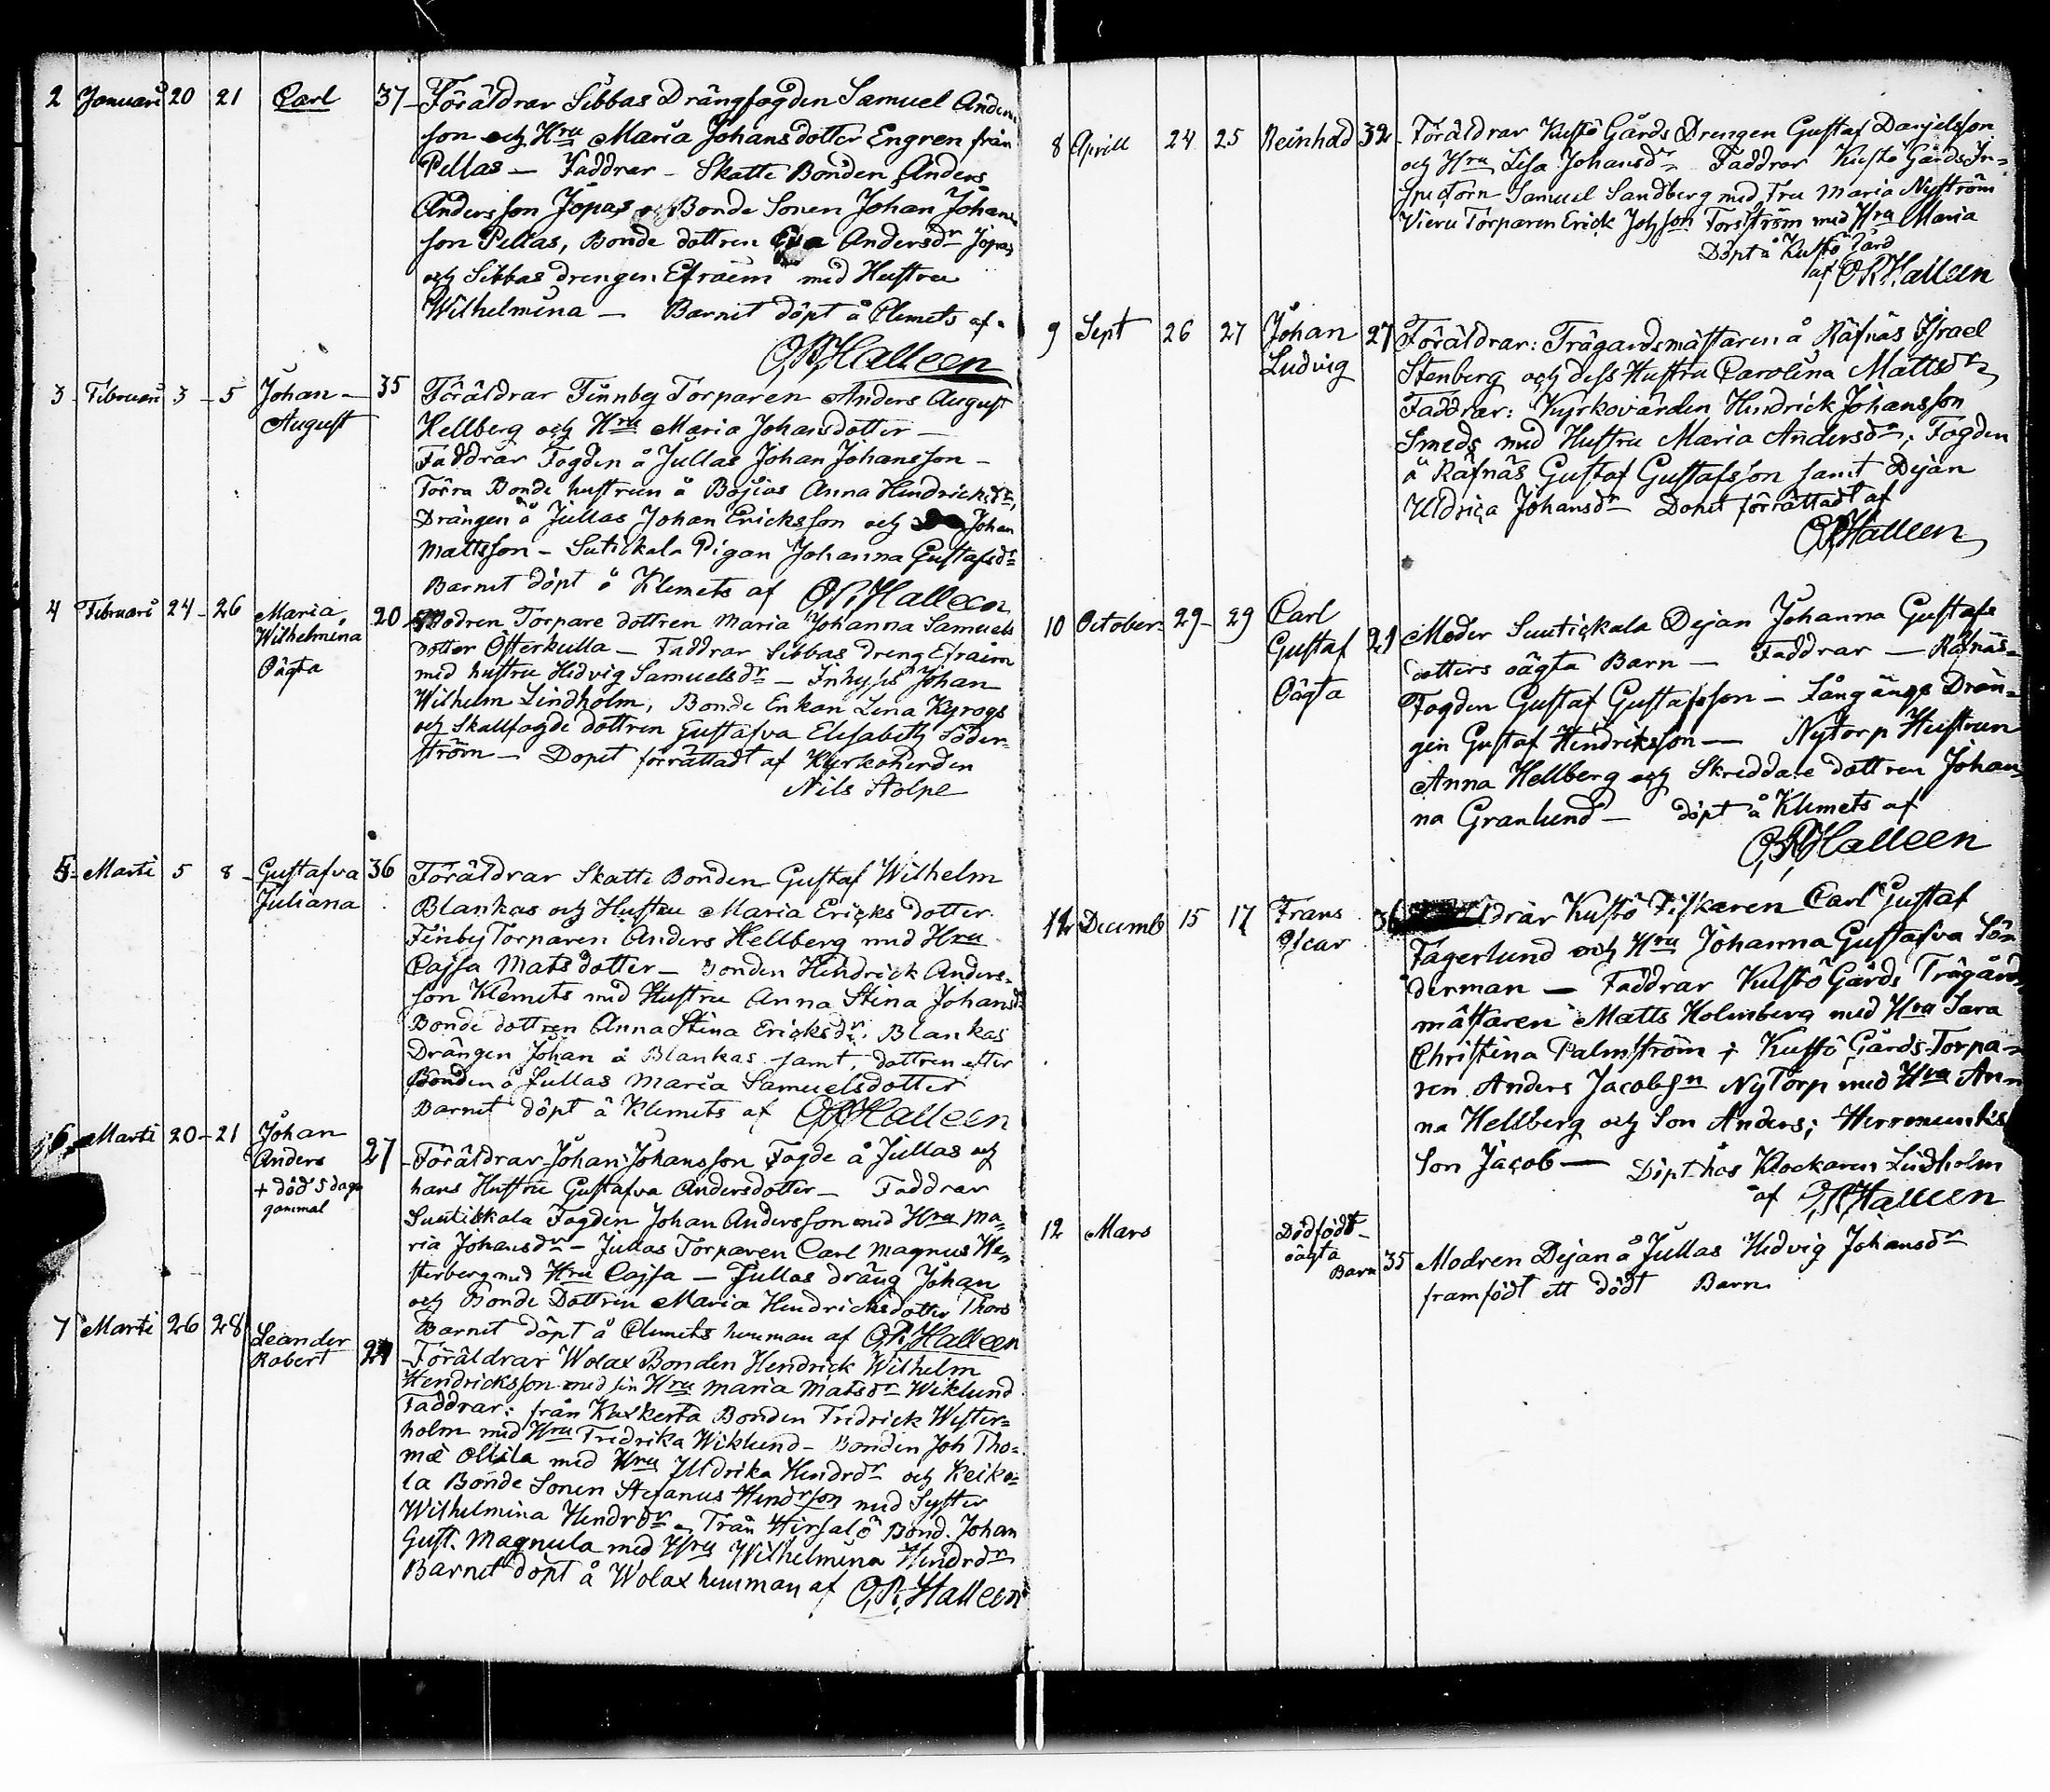 2 Januari 20 21 Carl 37 Föräldrar Sibbas Drängfogden Samuel Anders
son och Hru Maria Johansdotter Engren från
Pellas — Faddrar — Skatte Bonden Anders
Andersson Jöpas och Bonde Sonen Johan Johans
son Pellas, Bonde dottren Eva Andersdr Jöpas
och Sibbas drengen Efraim med Hustru
Wilhelmina — Barnet döpt å Clemets af
O.R.Halleen
3 Februari 3 - 5 Johan - 35 Föräldrar Finnby Torparen Anders August
August Hellberg och Hru Maria Johansdotter —
Faddrar Fogden å Jullas Johan Johansson —
Förra Bonde hustrun å Böjias Anna Hindricksdr,
Drängen å Jullas Johan Ericksson och Johan
Mattsson — Sutickala Pigan Johanna Gustafsdr
Barnet döpt å Klemets af O.R.Halleen
4 Februari 24 - 26 Maria 20 Modren Torpare dottren Maria Johanna Samuels
Wilhelmina dotter Österkulla — Faddrar Sibbas dreng Efraim
Oägta med hustru Hedvig Samuelsdr — Inhyses Johan
Wilhelm Lindholm, Bonde Enkan Lena Kyrogs
och Skallfogde dottren Gustafva Elisabeth Söder=
ström — Dopet förrättadt af Kyrkoherden
Nils Aolpe
5 - Marti 5 8 - Gustafva 36 Föräldrar Skatte Bonden Gustaf Wilhelm
Juliana Blankas och Hustru Maria Ericks dotter
Finby Torparen Anders Hellberg med Hru
Cajsa Matsdotter — Bonden Hindrick Anders=
son Klemets med Hustru Anna Stina Johansd
Bonde dottren Anna Stina Ericksdr. Blankas
Drängen Johan å Blankas samt dottren efter
Bonden å Jullas Maria Samuelsdotter
Barnet döpt å Klemets af O.R.Halleen
6 Marti 20 - 21 Johan
Anders 27 - Föräldrar Johan Johansson Fogde å Jullas och
+ död 5 dagar hans Hustru Gustafva Andersdotter — Faddrar
gammal Suutiskala Fogden Johan Andersson med Hru Ma=
ria Johansdr — Jullas Torparen Carl Magnus We=
sterberg med Hru Cajsa — Jullas dräng Johan
och Bonde Dottren Maria Hindricksdotter Thors
Barnet döpt å Clemets hemman af O.R.Halleen
7 Marti 26 28 Leander
Robert 24 - Föräldrar Wolax Bonden Hendrick Wilhelm
Hendricksson med sin Hru Maria Matsdr Wiklund
Faddrar: från Kuxkerta Bonden Fridrick Wester=
holm med Hru Fredrika Wiklund — Bonden Joh Tho=
mæ Ollila med Hru Ulldrika Hindrdr och Keiko=
la Bonde Sonen Stefanus Hendrson med Syster
Wilhelmina Hendrdr — Från Hirsalö Bond. Johan
Gust. Magnula med Hru Wilhelmina Hindrdr
Barnet döpt å Wolax hemman af O.R.Halleen
8 Aprill 24 25 Reinhold 32 - Föräldrar Kustö Gårds Drengen Gustaf Danjelsson
och Hru Lisa Johansdr — Faddrar Kustö Gårds In=
spectorn Samuel Sandberg med Fru Maria Nyström
Vieru Torparen Erick Johsson Forsström med Hru Maria
Döpt å Kustö Gård
af O.R.Halleen
9 Sept 26 27 Johan 27 Föräldrar: Trägardsmästaren å Räfnäs Israel
Ludvig Stenberg och dess Hustru Carolina Mattsdr
Faddrar: Kyrkovärden Hindrick Johansson
Smeds med Hustru Maria Andersdr. Fogden
å Räfnäs Gustaf Gustafsson samt Dejan
Uldrica Johansdr — Dopet förrättadt af
O.R.Halleen
10 October 29 - 29 Carl
Gustaf 21 Moder Suutickala Dejan Johanna Gustafs
Oägta dotters oägta Barn — Faddrar — Räfnäs=
Fogden Gustaf Gustafsson — Långängs Drän=
gen Gustaf Hindriksson — Nytorp Hustrun
Anna Hellberg och Skreddare dottren Johan
na Granlund — döpt å Klemets af
O.R.Halleen
11 Decemb 15 17 Frans 36 Föräldrar Kustö Fiskaren Carl Gustaf
Oscar Fagerlund och Hru Johanna Gustafva Sö=
derman — Faddrar Kustö Gårds Trägårds
mästaren Matts Holmberg med Hru Sara
Christina Palmström; Kustö Gårds Torpa=
ren Anders Jacobsn NyTorp med Hru An=
na Hellberg och Son Anders; Herronunkis
Son Jacob — Döpt hos Klockaren Lindholm
af O.R.Halleen
12 Mars Dödfödt
oägta
Barn 35 Modren Dejan å Jullas Hedvig Johansdr
framfödt ett dödt Barn